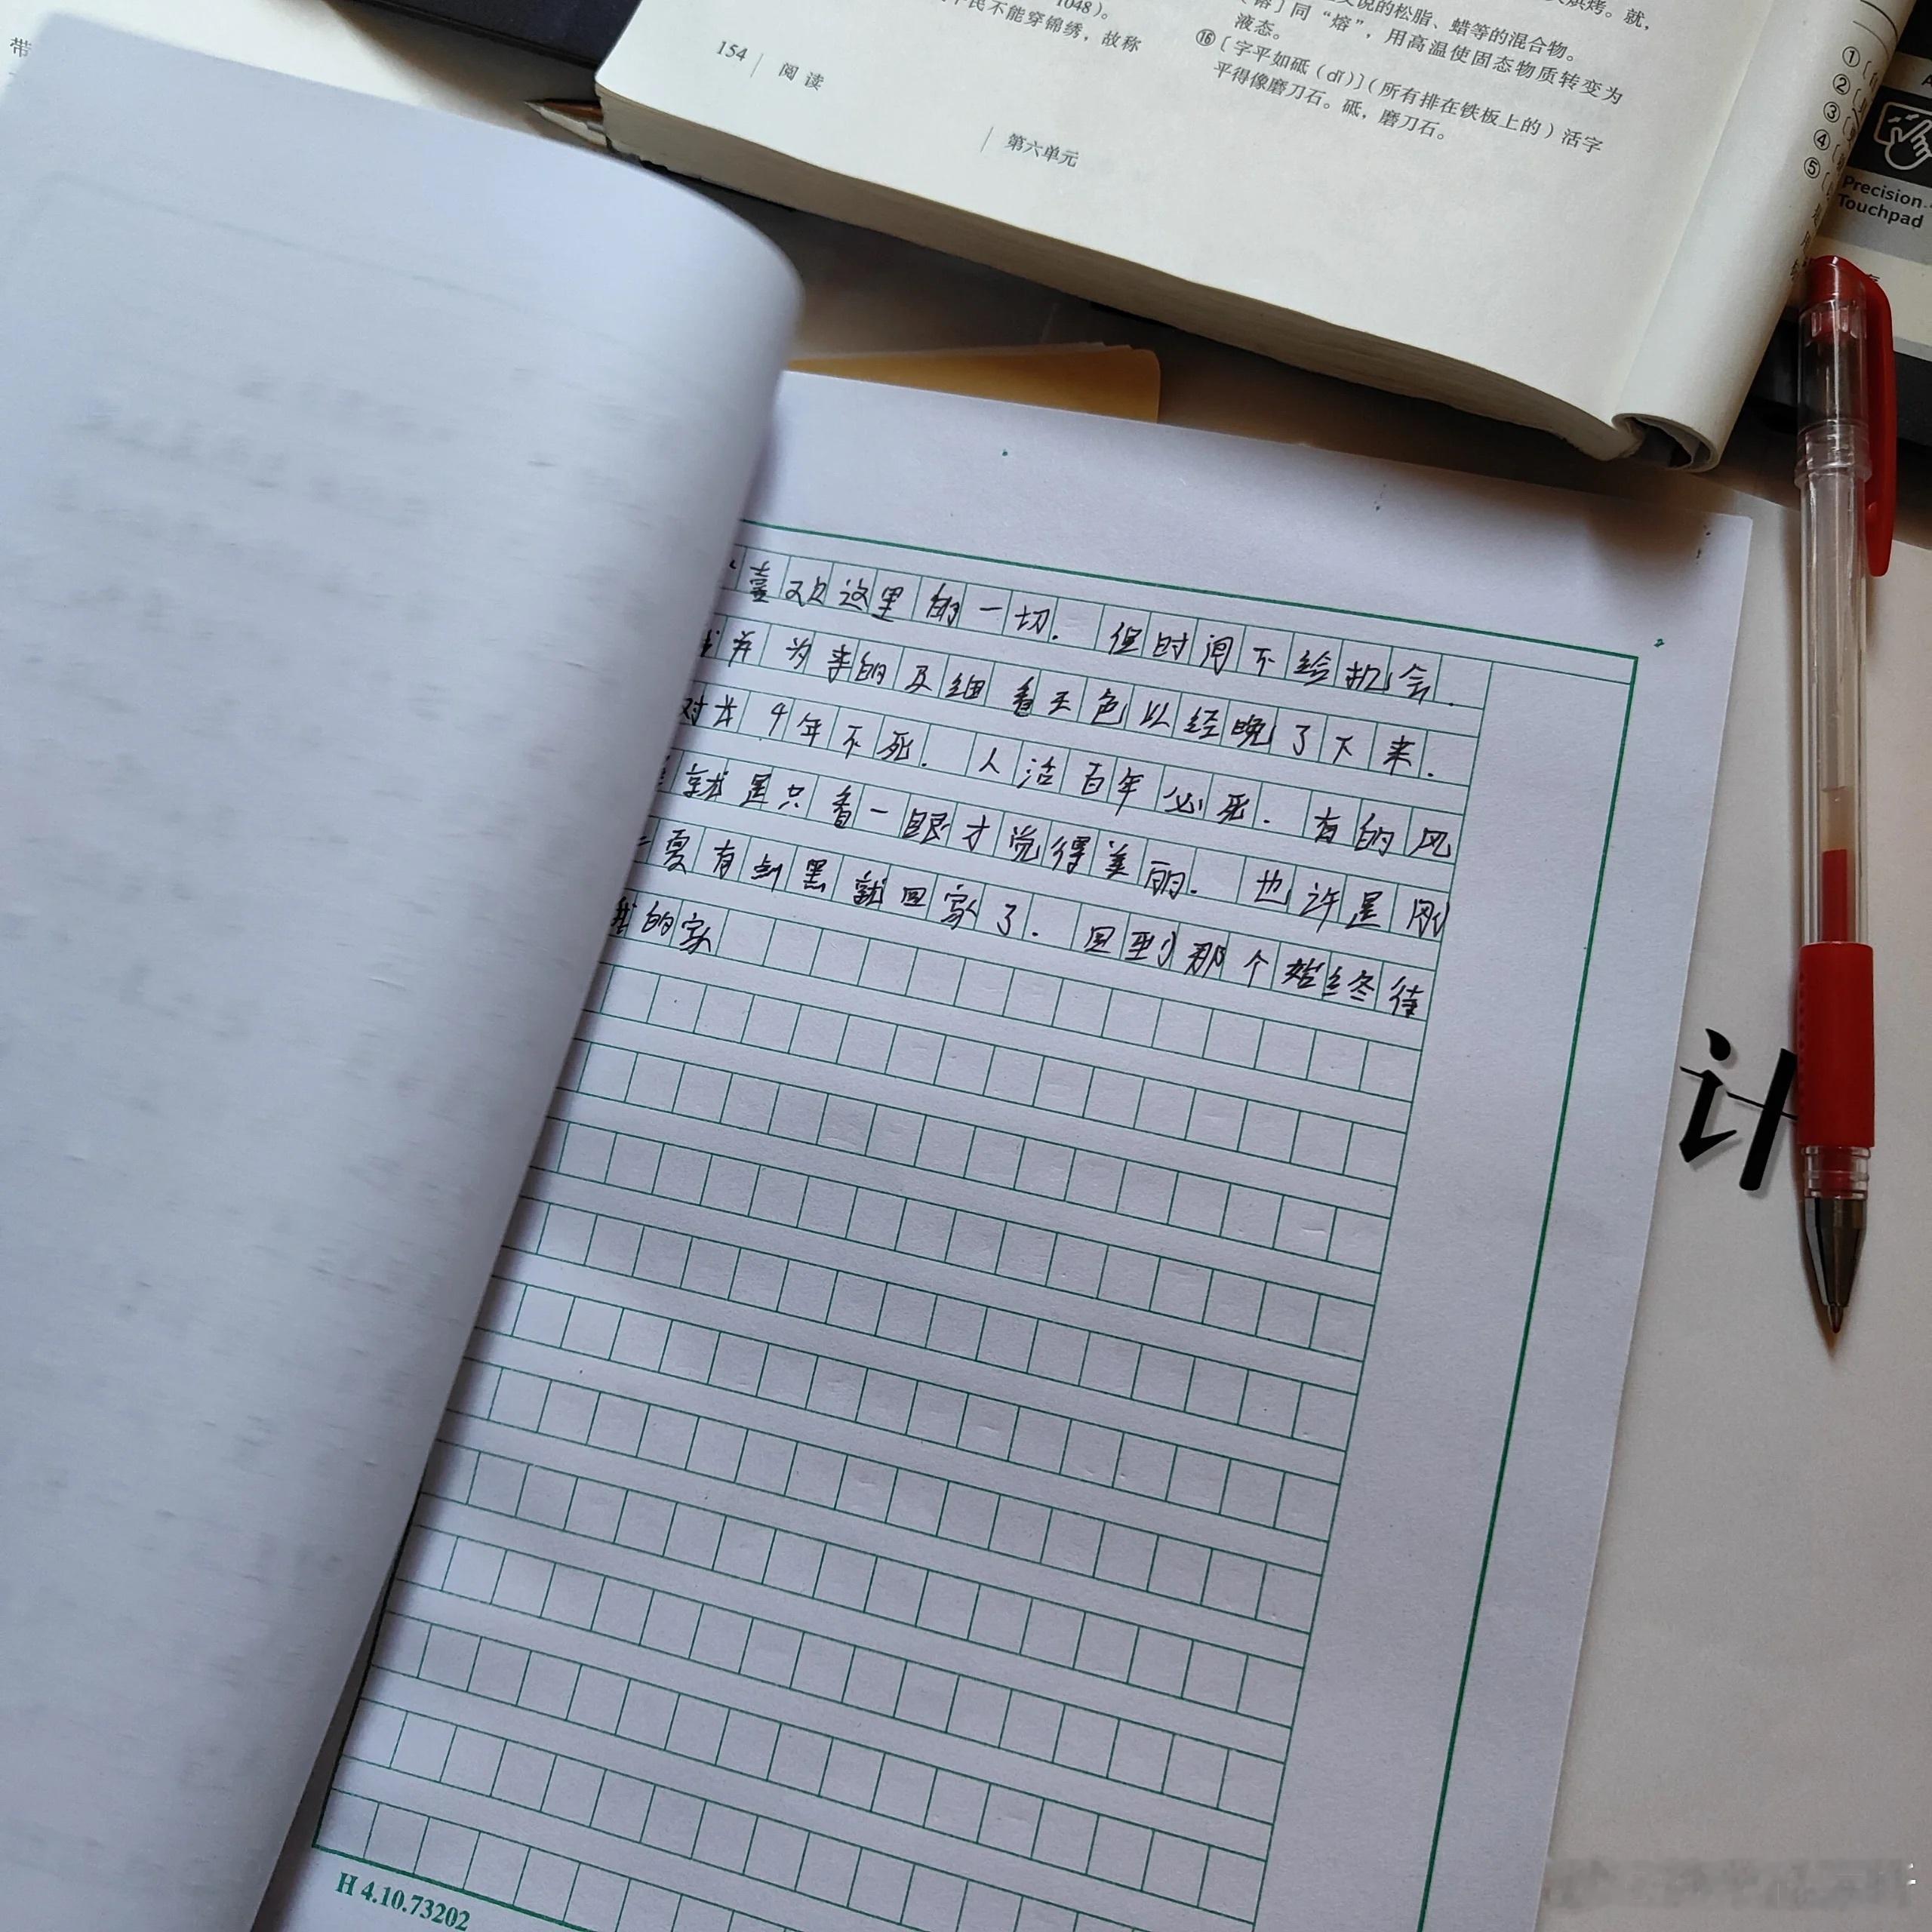 带
1048）。
民不能穿锦绣，故称
154 阅读
文说的松脂、蜡等的混合物。
烘烤。就，
同“熔”，用高温使固态物质转变为
液态。
⑯〔字平如砥（dǐ）〕（所有排在铁板上的）活字
平得像磨刀石。砥，磨刀石。
第六单元
①〔
②〔
③〔
④〔
⑤〔
Precision
Touchpad
喜欢这里的一切．但时间不给机会．
我并为来的及细看天色以经晚了下来．
对去千年不死．人活百年必死．有的风
就是只看一眼才觉得美丽．也许是刚
夏有点黑就回家了．回到那个始终待
我的家
计
H 4.10.73202